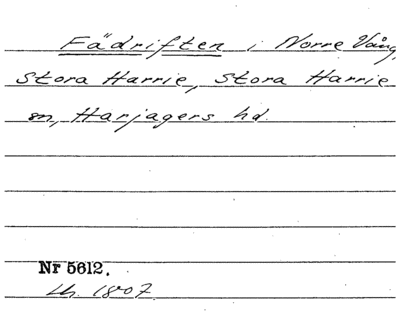 Fädriften i Norre Vång,
Stora Harrie, Stora Harrie
sn, Harjagers hd.
Nr 5612.
Lh. 1807